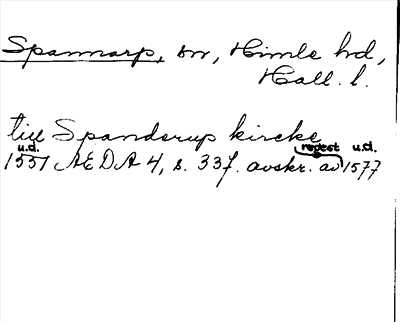 Spannarp, sn, Himle hd,
Hall. l.
till Spanderup kircke
u.d. regest u.d.
1551 ÆDA 4, s. 337. avskr. av 1577